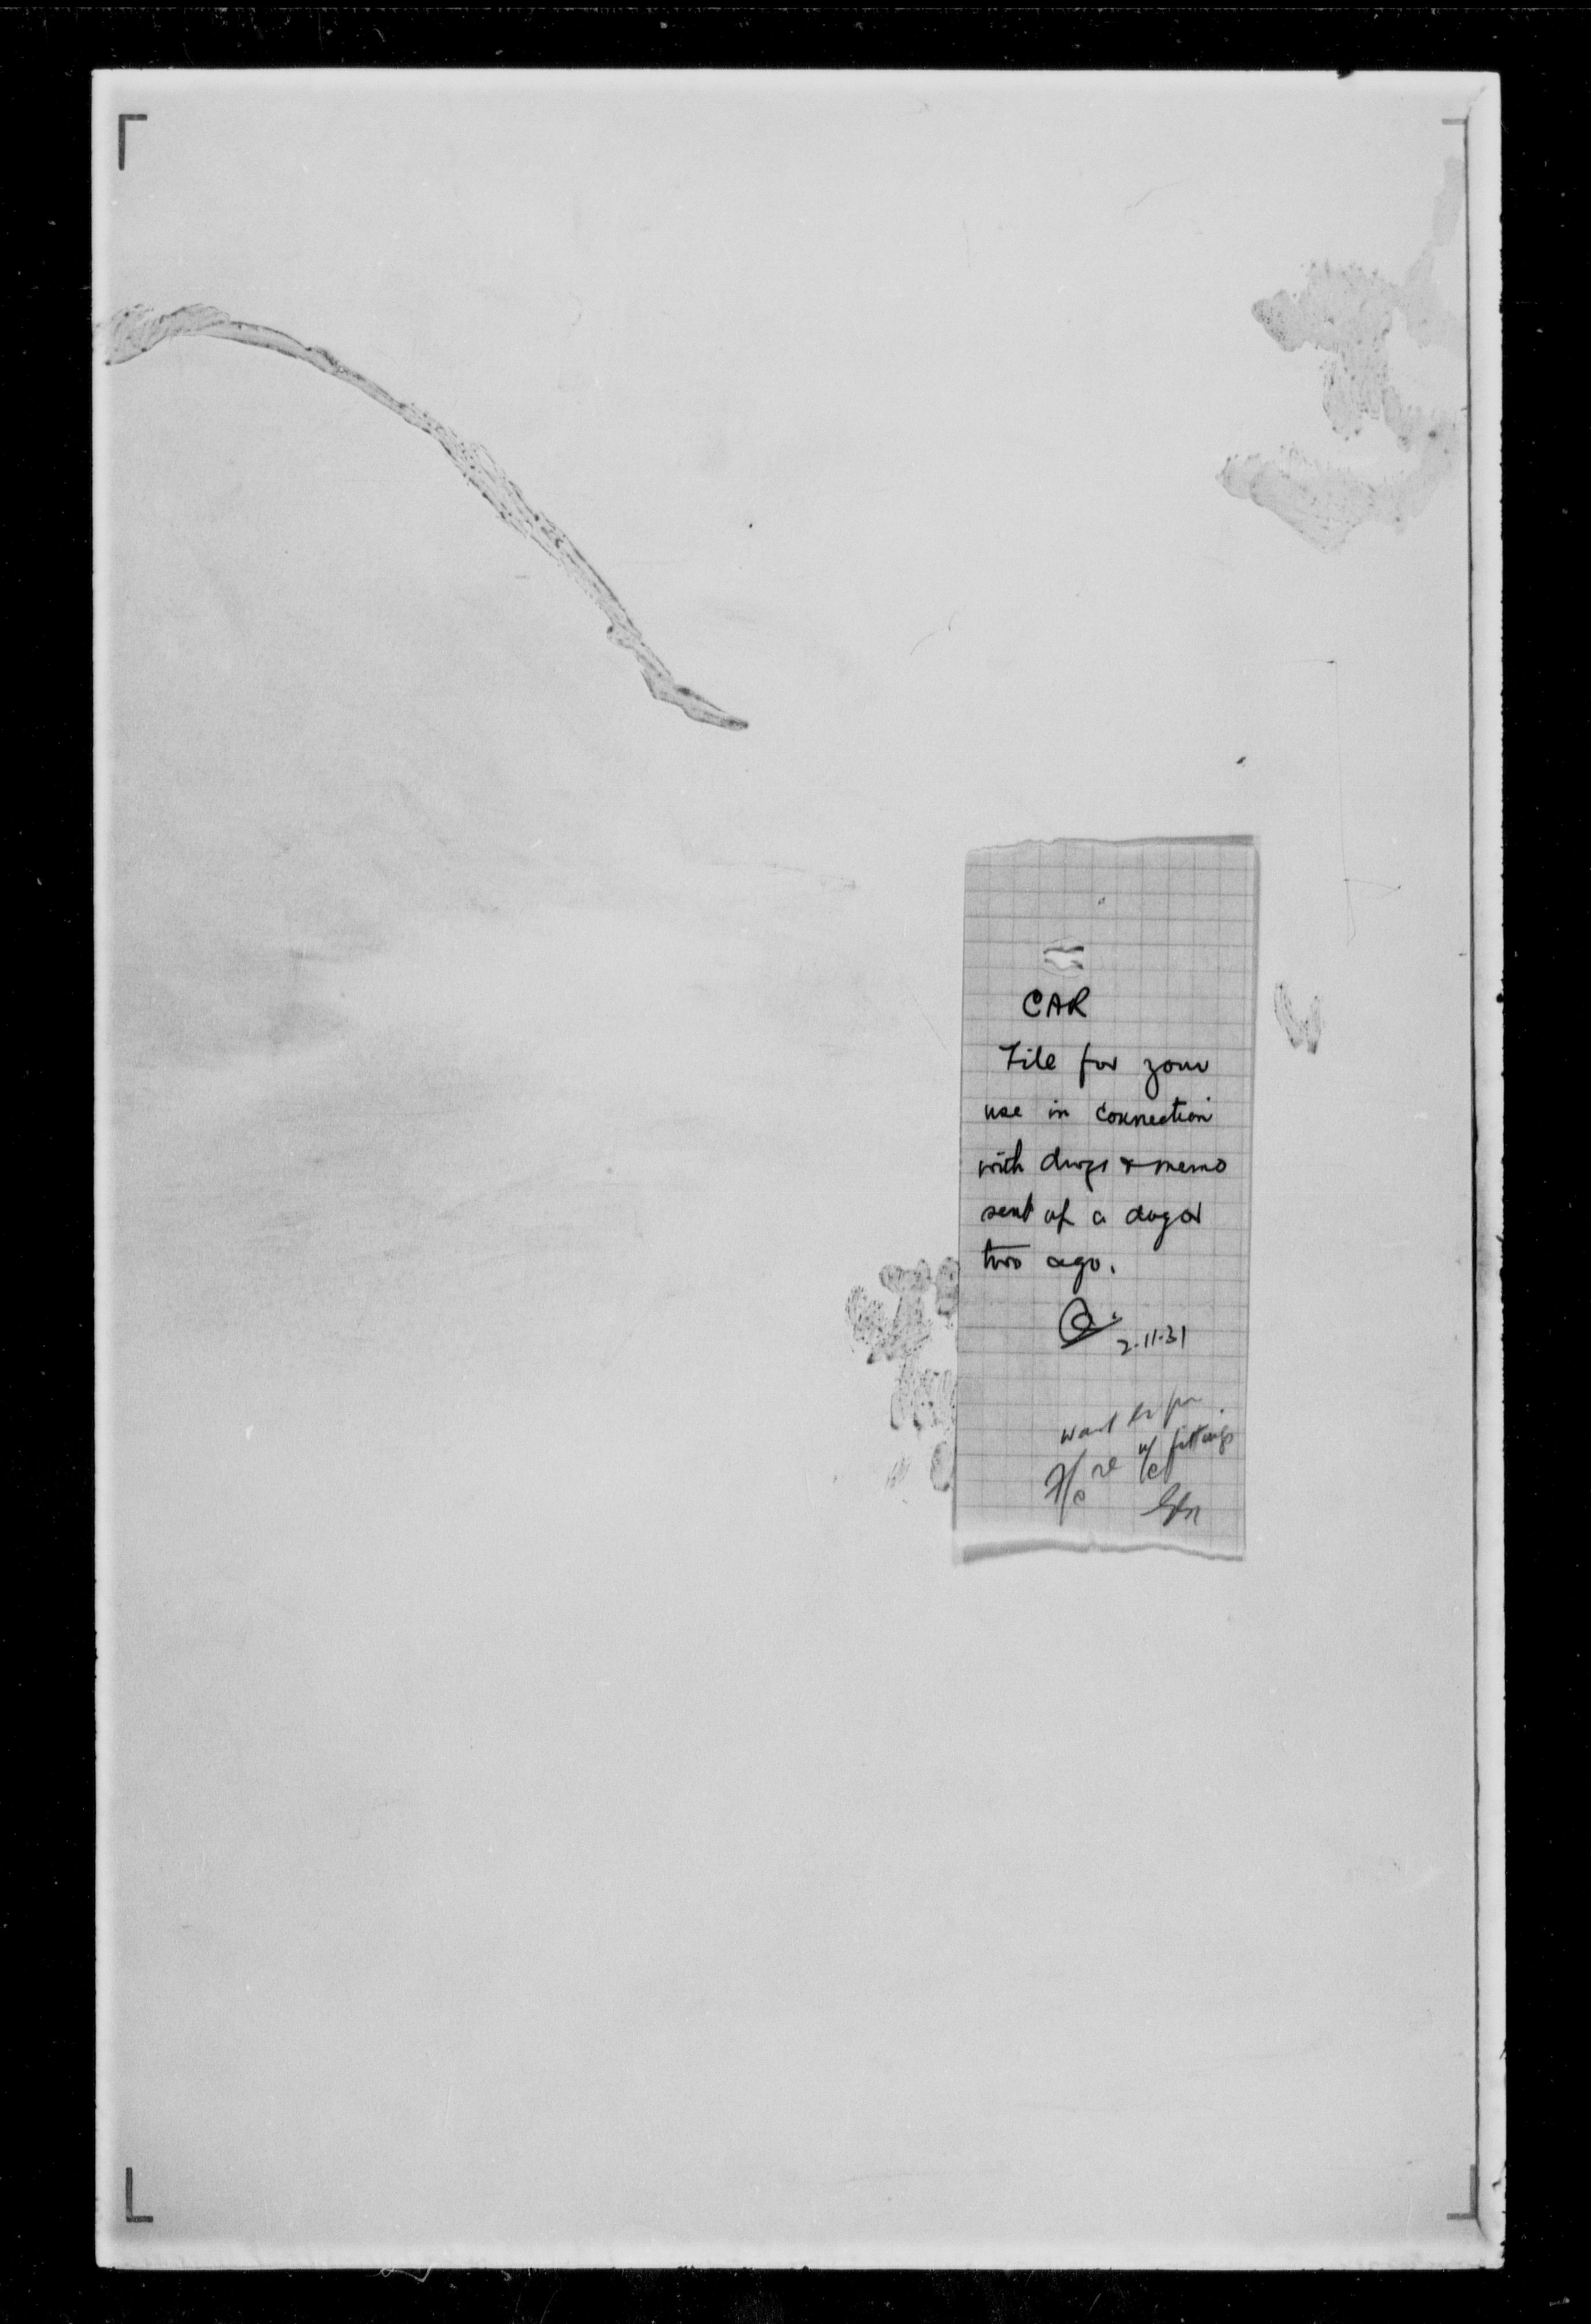 CAR
File for your
use in connection
with dwgs & memo
sent up a day or
two ago.
2.11.31
want
re w/c fittings